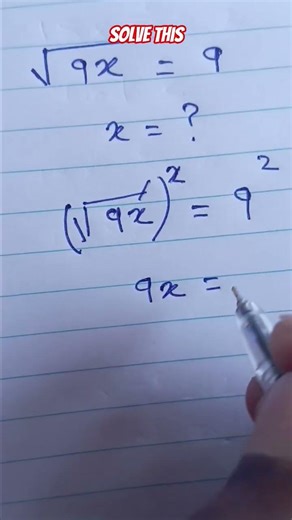 SOLVE THIS
√9x = 9
x = ?
(√9x)^x = 9^2
9x =